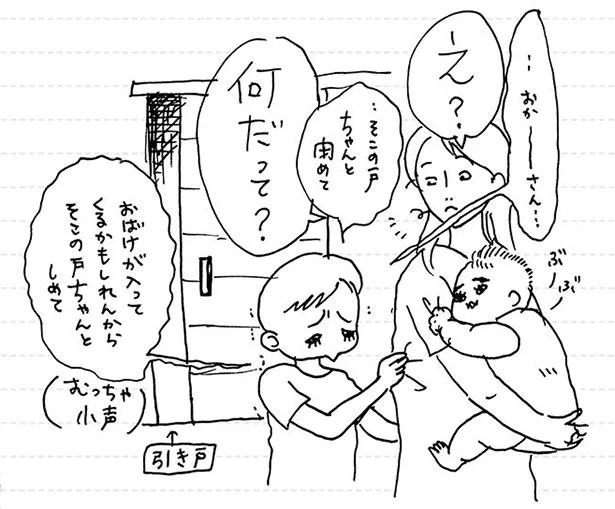 …おかーーさん…
え？
…そこの戸
ちゃんと
閉めて
何だって？
おばけが入って
くるかもしれんから
そこの戸ちゃんと
しめて
(むっちゃ
小声)
引き戸
ぶーぶ